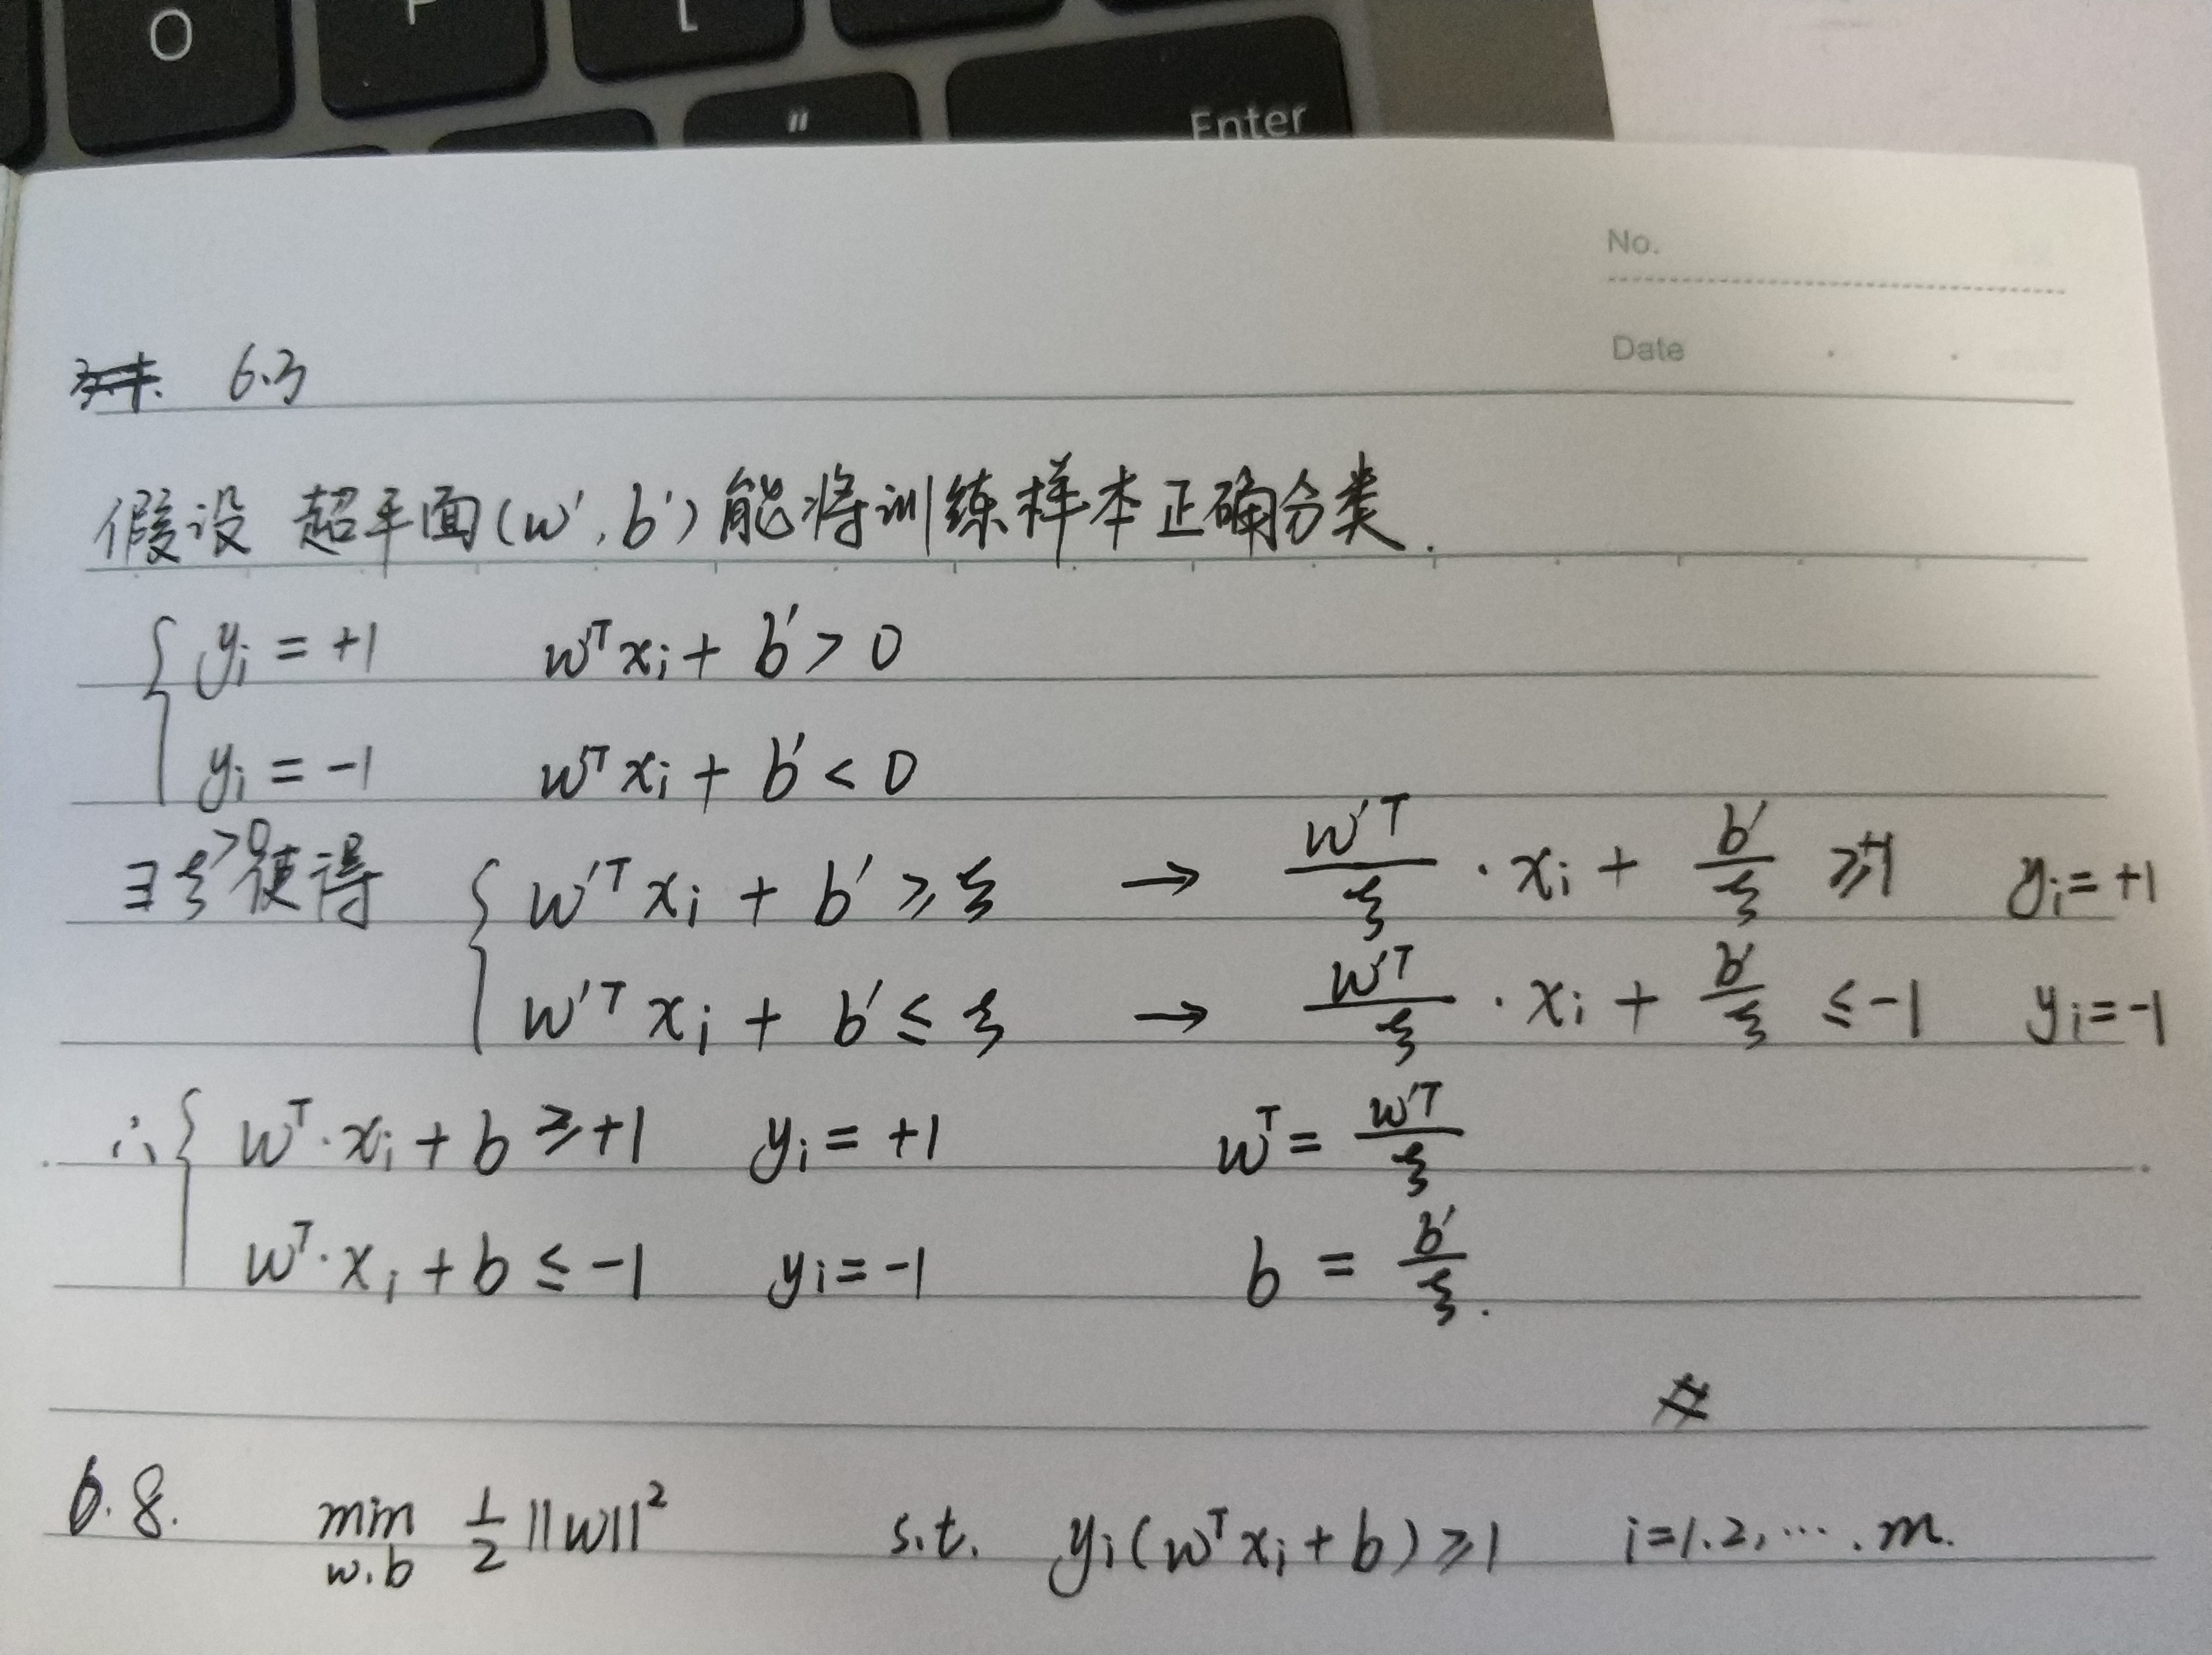 O P [
" Enter
No.
Date
6.3
假设 超平面(w', b')能将训练样本正确分类.
{ yᵢ = +1 w'ᵀxᵢ + b' > 0
yᵢ = -1 w'ᵀxᵢ + b' < 0
∃ξ>0使得 { w'ᵀxᵢ + b' ≥ ξ → w'ᵀ/ξ · xᵢ + b'/ξ ≥ +1 yᵢ = +1
w'ᵀxᵢ + b' ≤ ξ → w'ᵀ/ξ · xᵢ + b'/ξ ≤ -1 yᵢ = -1
∴ { wᵀ·xᵢ + b ≥ +1 yᵢ = +1 wᵀ = w'ᵀ/ξ
wᵀ·xᵢ + b ≤ -1 yᵢ = -1 b = b'/ξ.
#
6.8. min w.b 1/2 ||w||² s.t. yᵢ(wᵀxᵢ + b) ≥ 1 i=1.2,….m.